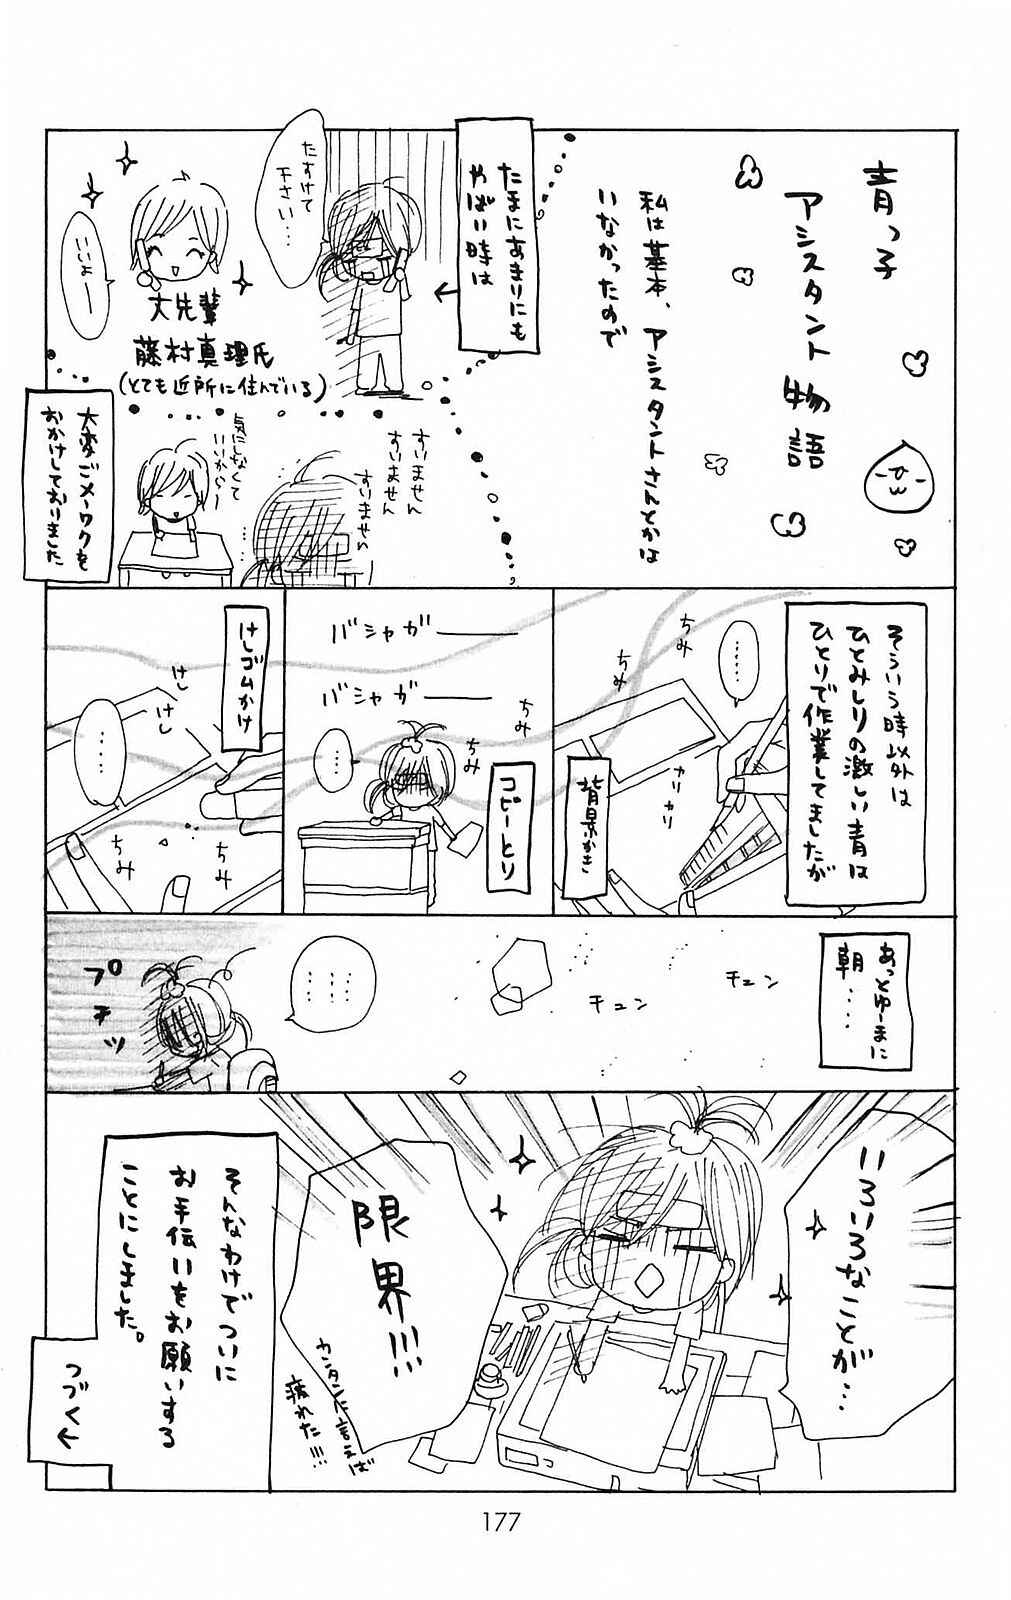 青っ子
アシスタント物語
私は基本、アシスタントさんとかは
いなかったので
たまにあまりにも
やばい時は
たすけて
下さい…
いいよー
大先輩
藤村真理氏
(とても近所に住んでいる)
すいません
すいません
すいません
気にしなくて
いいから〜
…
大変ごメーワクを
おかけしておりました
そういう時以外は
ひとみしりの激しい青は
ひとりで作業してましたが
……
ちみ
ちみ
カリカリ
背景かき
バシャガー
バシャガー
ちみ
ちみ
…
コピーとり
けしゴムかけ
けし
けし
…
ちみ
ちみ
あっとゆーまに
朝….
チュン
チュン
……
プチッ
いろいろなことが…
限界!!!
カンタンに言えば
疲れた!!!
そんなわけでついに
お手伝いをお願いする
ことにしました。
つづく←
177